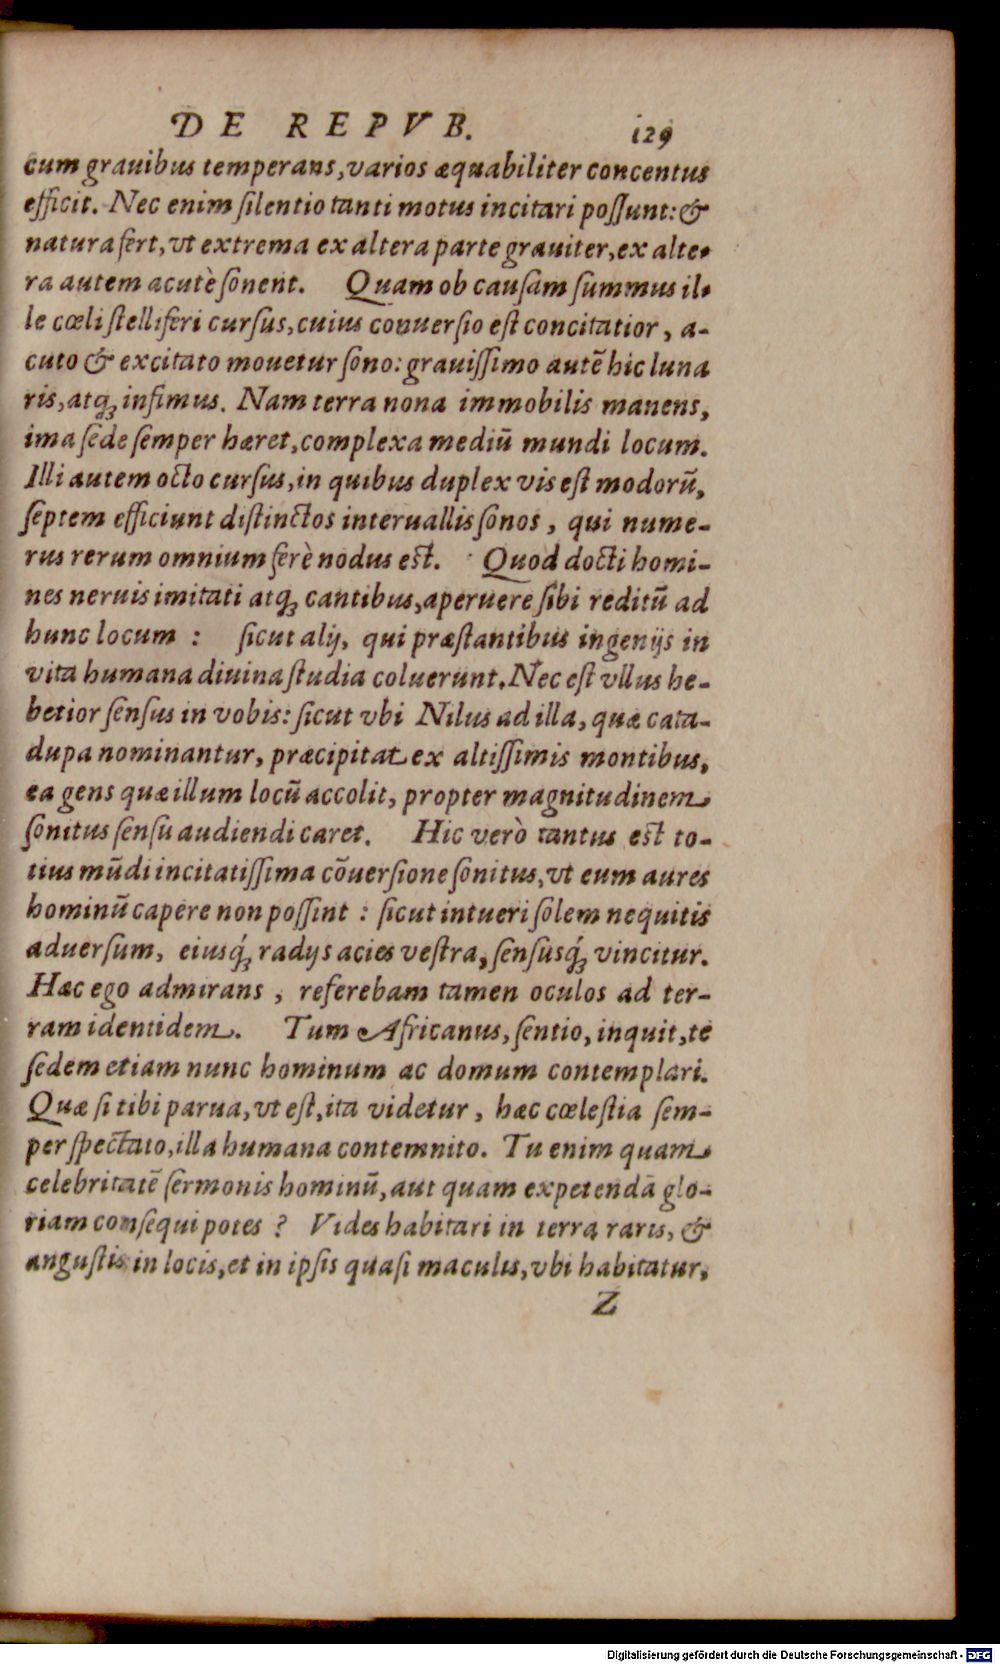 DE REPVB. 129
cum grauibus temperans, varios æquabiliter concentus
efficit. Nec enim ſilentio tanti motus incitari poſſunt: &
natura fert, vt extrema ex altera parte grauiter, ex alte-
ra autem acutè ſonent. Quam ob cauſam ſummus il-
le cœli ſtelliferi curſus, cuius conuerſio eſt concitatior, a-
cuto & excitato mouetur ſono: grauiſſimo autē hic luna
ris, atq; infimus. Nam terra nona immobilis manens,
ima ſede ſemper hæret, complexa mediū mundi locum.
Illi autem octo curſus, in quibus duplex vis eſt modorū,
ſeptem efficiunt diſtinctos interuallis ſonos, qui nume-
rus rerum omnium ferè nodus est. Quod docti homi-
nes neruis imitati atq; cantibus, aperuere ſibi reditū ad
hunc locum : ſicut alij, qui præſtantibus ingenijs in
vita humana diuina ſtudia coluerunt. Nec eſt vllus he-
betior ſenſus in vobis: ſicut vbi Nilus ad illa, quæ cata-
dupa nominantur, præcipitat ex altiſſimis montibus,
ea gens quæ illum locū accolit, propter magnitudinem
ſonitus ſenſu audiendi caret. Hic verò tantus est to-
tius mūdi incitatiſſima cōuerſione ſonitus, vt eum aures
hominū capere non poſſint : ſicut intueri ſolem nequitis
aduerſum, eiusq́; radijs acies veſtra, ſenſusq́; vincitur.
Hæc ego admirans, referebam tamen oculos ad ter-
ram identidem. Tum Africanus, ſentio, inquit, te
ſedem etiam nunc hominum ac domum contemplari.
Quæ ſi tibi parua, vt eſt, ita videtur, hæc cœleſtia ſem-
per ſpectato, illa humana contemnito. Tu enim quam
celebritatē ſermonis hominū, aut quam expetendā glo-
riam conſequi potes ? Vides habitari in terra raris, &
anguſtis in locis, et in ipſis quaſi maculis, vbi habitatur,
Z
Digitalisierung gefördert durch die Deutsche Forschungsgemeinschaft - DFG